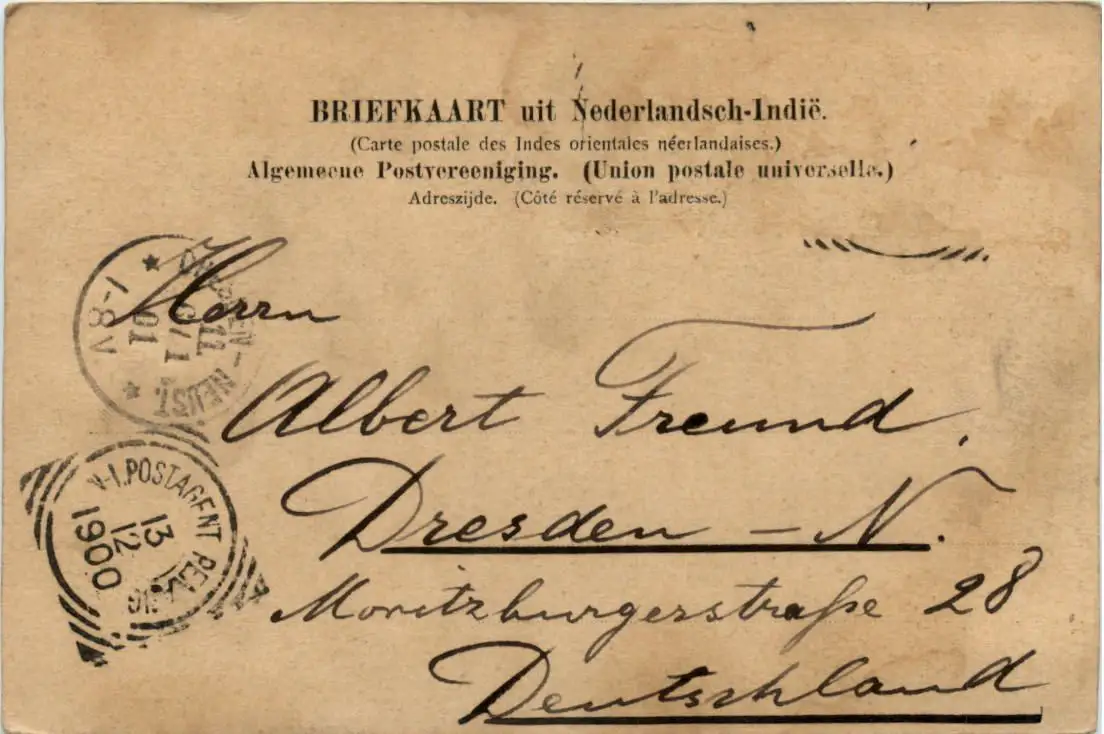 BRIEFKAART uit Nederlandsch-Indië.
(Carte postale des Indes orientales néerlandaises.)
Algemeene Postvereeniging. (Union postale universelle.)
Adreszijde. (Côté réservé à l'adresse.)
Herrn
Albert Freund.
Dresden – N.
Moritzburgerstraße 28
Deutschland
DRESDEN - NEUST.
11
1
01
1-8V
N-I.POSTAGENT
13
12
1900